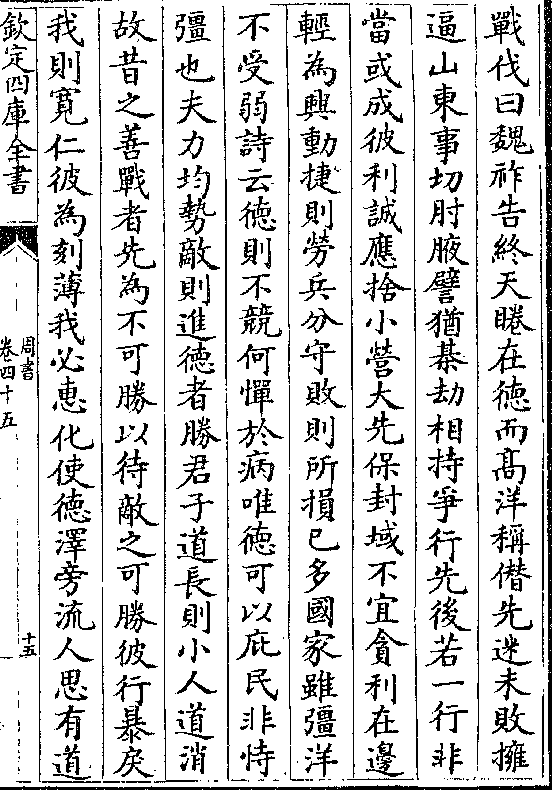 戰伐曰魏祚告終天睠在德而髙洋稱僭先迷未敗擁
逼山東事切肘腋譬猶棊劫相持爭行先後若一行非
當或成彼利誠應捨小營大先保封域不宜貪利在邊
輕為興動捷則勞兵分守敗則所損已多國家雖彊洋
不受弱詩云德則不競何憚於病唯德可以庇民非恃
彊也夫力均勢敵則進德者勝君子道長則小人道消
故昔之善戰者先為不可勝以待敵之可勝彼行暴戾
我則寬仁彼為刻薄我必惠化使德澤旁流人思有道
欽定四庫全書
周書
卷四十五
十五